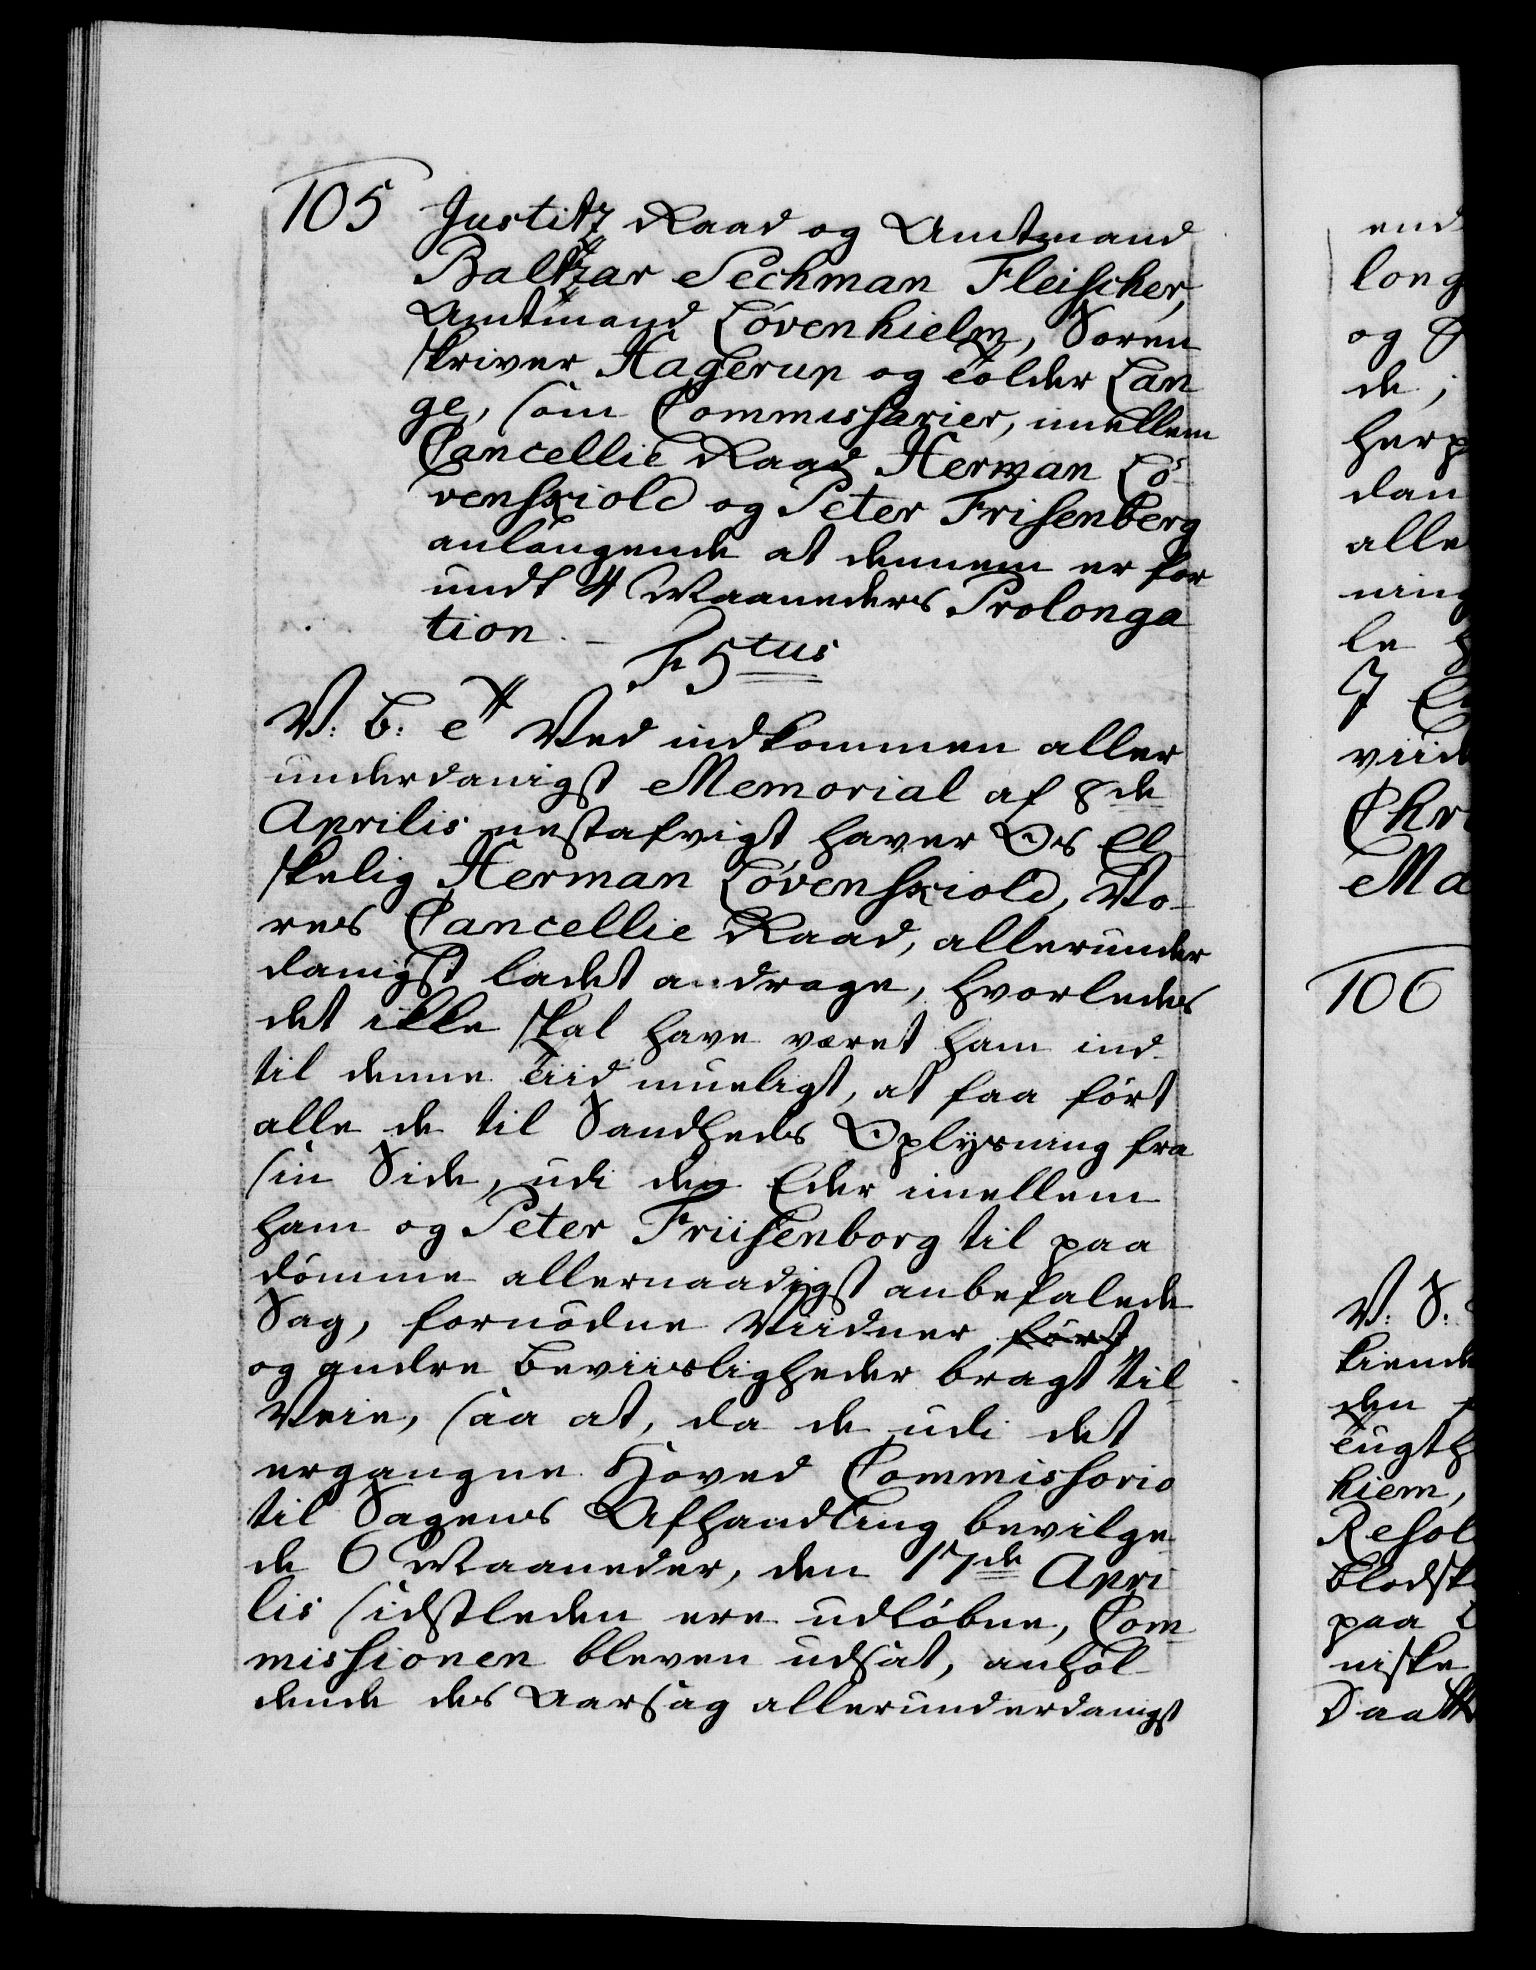 105 Justitz Raad og Amtmand
Baltzar Sechman Fleischer,
Amtmand Løvenhielm, Soren
skriver Hagerup og Tolder Lan
ge, som Commissarier, imellem
Cancellie Raad Herman Lö-
venskiold og Peter Frisenberg
anlangende at dennem er for
undt 4 Maaneders Prolonga
tion. –
F 5tus
V: G: A Ved indkommen aller
underdanigst Memorial af 8de
Aprilis nestafvigt haver Os El
skelig Herman Løvenskiold, Vo-
res Cancellie Raad, allerunder
danigst ladet andrage, hvorledes
det ikke skal have været ham ind
til denne Tiid mueligt, at faa ført
alle de til Sandheds Oplysning fra
sin Side, udi den Eder imellem
ham og Peter Friisenborg til paa
dømme allernaadigst anbefalede
Sag, fornødne Viidner ført
og andre Beviisligheder bragt til
Veie, saa at, da de udi det
ergangne Hoved Commissorio
til Sagens Afhandling bevilge
de 6 Maaneder, den 17de Apri
lis sidstleden ere udløbne, Com-
missionen bleven udsat, anhol-
dende des Aarsag allerunderdanigst
end
long
og
de,
herp
dan
alle
ning
le
7
viid
Chr
Ma
106
V: S:
kiend
den
Tugth
hiem,
Resol
Blodsk
paa
niske
Daatt